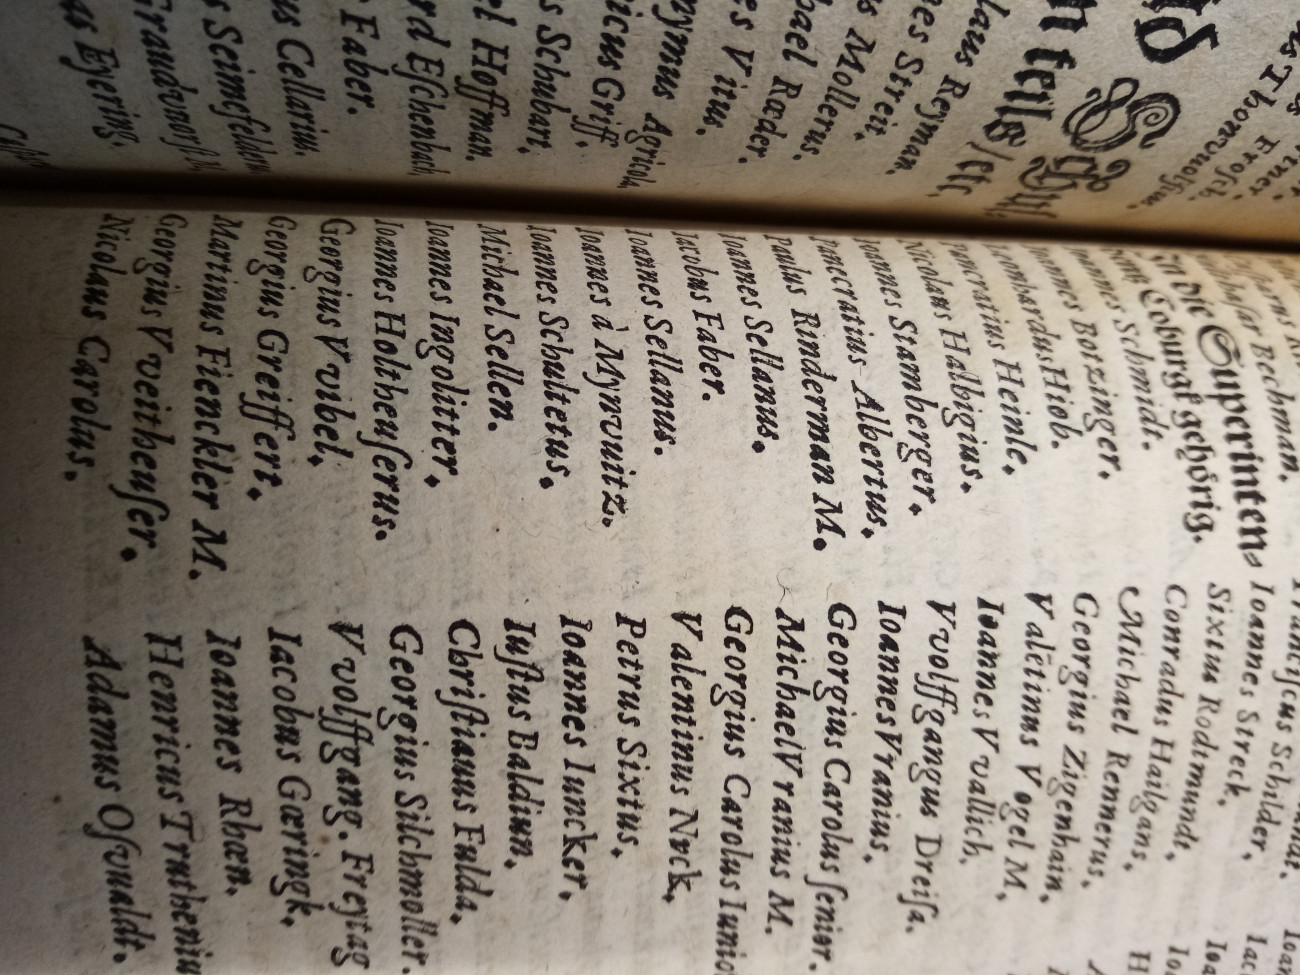 nd Sch
ntells/etc.
Thonvuolfius.
Frosch.
laus Reyman.
nes Streit.
s Mollerus.
hael Ræder.
es Vitus.
nymus Agricola
icus Griff.
s Schubart.
el Hoffman.
rd Eſchenbach
Faber.
us Cellarius.
s Seimefelderus
us Eyering.
Bechman.
zu die Superinten⸗
Coburgk gehörig.
Schmidt.
annes Botzinger.
Leonhardus Hiob.
Pancratius Heinle.
Nicolaus Halbigius.
Ioannes Stamberger.
Pancratius Albertus.
Paulus Rinderman M.
Ioannes Sellanus.
Iacobus Faber.
Ioannes Sellanus.
Ioannes à Mynvuitz.
Ioannes Schultetus.
Michael Sellen.
Ioannes Ingolitter.
Ioannes Holtheuſerus.
Georgius Vvibel.
Georgius Greiffert.
Martinus Fienckler M.
Georgius Vveitheuſer.
Nicolaus Carolus.
Schilder,
Ioannes Streck,
Sixtus Rodtmundt,
Conradus Hailgans,
Michael Rennerus,
Georgius Zigenhain,
Valētinus Vogel M,
Ioannes Vvallich,
Vvolffgangus Dreiſa,
Ioannes Vranius,
Georgius Carolus ſenior.
Michael Vranius M.
Georgius Carolus Iunio
Valentinus Nuck,
Petrus Sixtus,
Ioannes Iuncker,
Iuſtus Balduin,
Chriſtianus Fulda,
Georgius Silchmoller.
Vvolffgang. Freytag
Iacobus Gœringk,
Ioannes Rhœn,
Henricus Truthenius
Adamus Oſvualdt.